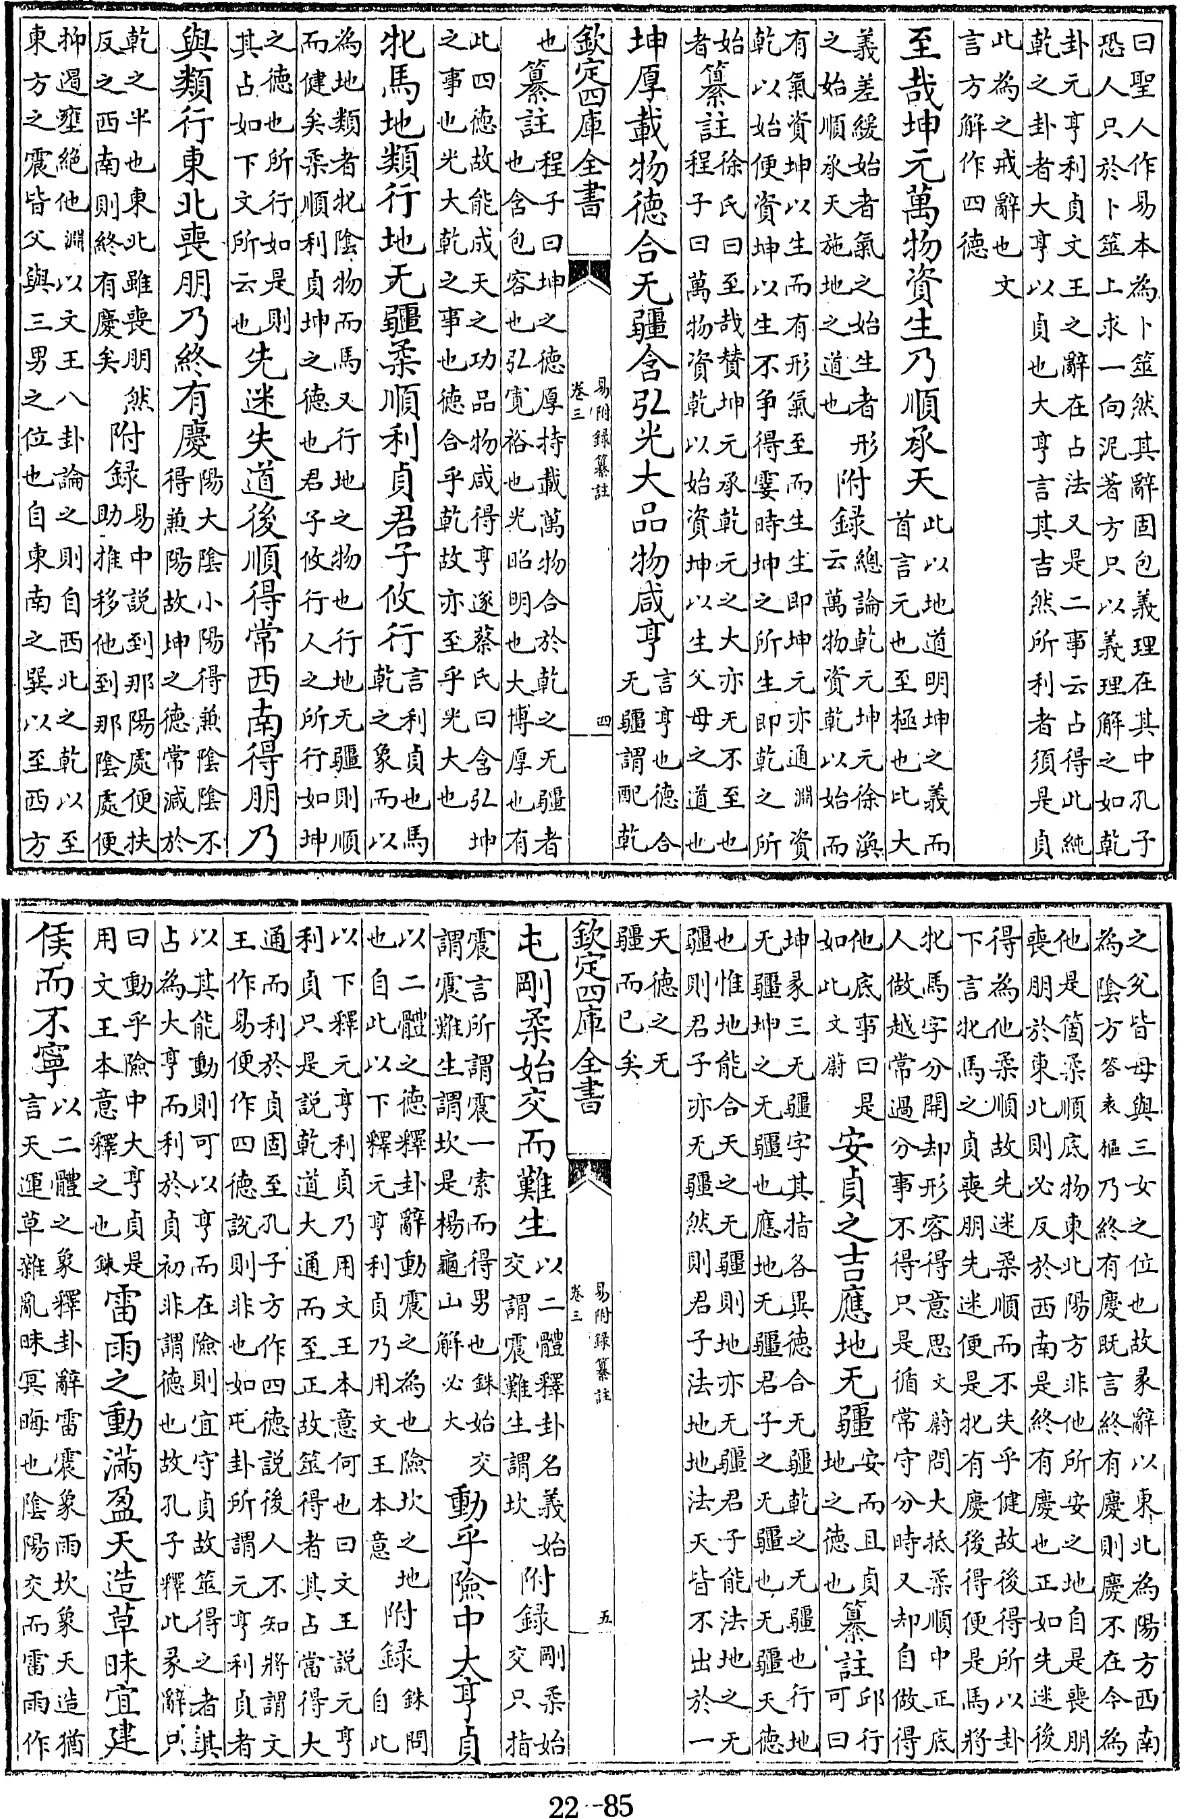 曰聖人作易本為卜筮然其辭固包義理在其中孔子
恐人只於卜筮上求一向泥著方只以義理解之如乾
卦元亨利貞文王之辭在占法又是二事云占得此純
乾之卦者大亨以貞也大亨言其吉然所利者須是貞
此為之戒辭也文
言方解作四德
至哉坤元萬物資生乃順承天
此以地道明坤之義而
首言元也至極也此大
義差緩始者氣之始生者形
之始順承天施地之道也
附錄
總論乾元坤元徐渙
云萬物資乾以始而
有氣資坤以生而有形氣至而生生即坤元亦通淵資
乾以始便資坤以生不爭得霎時坤之所生即乾之所
始
者
纂註
徐氏曰至哉贊坤元承乾元之大亦无不至也
程子曰萬物資乾以始資坤以生父母之道也
坤厚載物德合无疆含弘光大品物咸亨
言亨也德合
无疆謂配乾
欽定四庫全書
易附錄纂註
卷三
四
也
纂註
程子曰坤之德厚持載萬物合於乾之无疆者
也含包容也弘寬裕也光昭明也大博厚也有
此四德故能成天之功品物咸得亨遂蔡氏曰含弘坤
之事也光大乾之事也德合乎乾故亦至乎光大也
牝馬地類行地无疆柔順利貞君子攸行
言利貞也馬
乾之象而以
為地類者牝陰物而馬又行地之物也行地无疆則順
而健矣柔順利貞坤之德也君子攸行人之所行如坤
之德也所行如是則
其占如下文所云也
先迷失道後順得常西南得朋乃
與類行東北喪朋乃終有慶
陽大陰小陽得兼陰陰不
得兼陽故坤之德常減於
乾之半也東北雖喪朋然
反之西南則終有慶矣
附錄
易中說到那陽處便扶
助推移他到那陰處便
抑遏壅絕他淵以文王八卦論之則自西北之乾以至
東方之震皆父與三男之位也自東南之巽以至西方
之兌皆母與三女之位也故彖辭以東北為陽方西南
為陰方答袁樞乃終有慶既言終有慶則慶不在今為
他是箇柔順底物東北陽方非他所安之地自是喪朋
喪朋於東北則必反於西南是終有慶也正如先迷後
得為他柔順故先迷柔順而不失乎健故後得所以卦
下言牝馬之貞喪朋先迷便是牝有慶後得便是馬將
牝馬字分開却形容得意思文蔚問大抵柔順中正底
人做越常過分事不得只是循常守分時又却自做得
他底事曰是
如此文蔚
安貞之吉應地无疆
安而且貞
地之德也
纂註
邱行
可曰
坤彖三无疆字其指各異德合无疆乾之无疆也行地
无疆坤之无疆也應地无疆君子之无疆也无疆天德
也惟地能合天之无疆則地亦无疆君子能法地之无
疆則君子亦无疆然則君子法地地法天皆不出於一
天德之无
疆而已矣
欽定四庫全書
易附錄纂註
卷三
五
屯剛柔始交而難生
以二體釋卦名義始
交謂震難生謂坎
附錄
剛柔始
交只指
震言所謂震一索而得男也銖始交
謂震難生謂坎是楊龜山解必大
動乎險中大亨貞
以二體之德釋卦辭動震之為也險坎之地
也自此以下釋元亨利貞乃用文王本意
附錄
銖問
自此
以下釋元亨利貞乃用文王本意何也曰文王說元亨
利貞只是說乾道大通而至正故筮得者其占當得大
通而利於貞固至孔子方作四德說後人不知將謂文
王作易便作四德說則非也如屯卦所謂元亨利貞者
以其能動則可以亨而在險則宜守貞故筮得之者其
占為大亨而利於貞初非謂德也故孔子釋此彖辭只
曰動乎險中大亨貞是
用文王本意釋之也銖
雷雨之動滿盈天造草昧宜建
侯而不寧
以二體之象釋卦辭雷震象雨坎象天造猶
言天運草雜亂昧冥晦也陰陽交而雷雨作
22--85